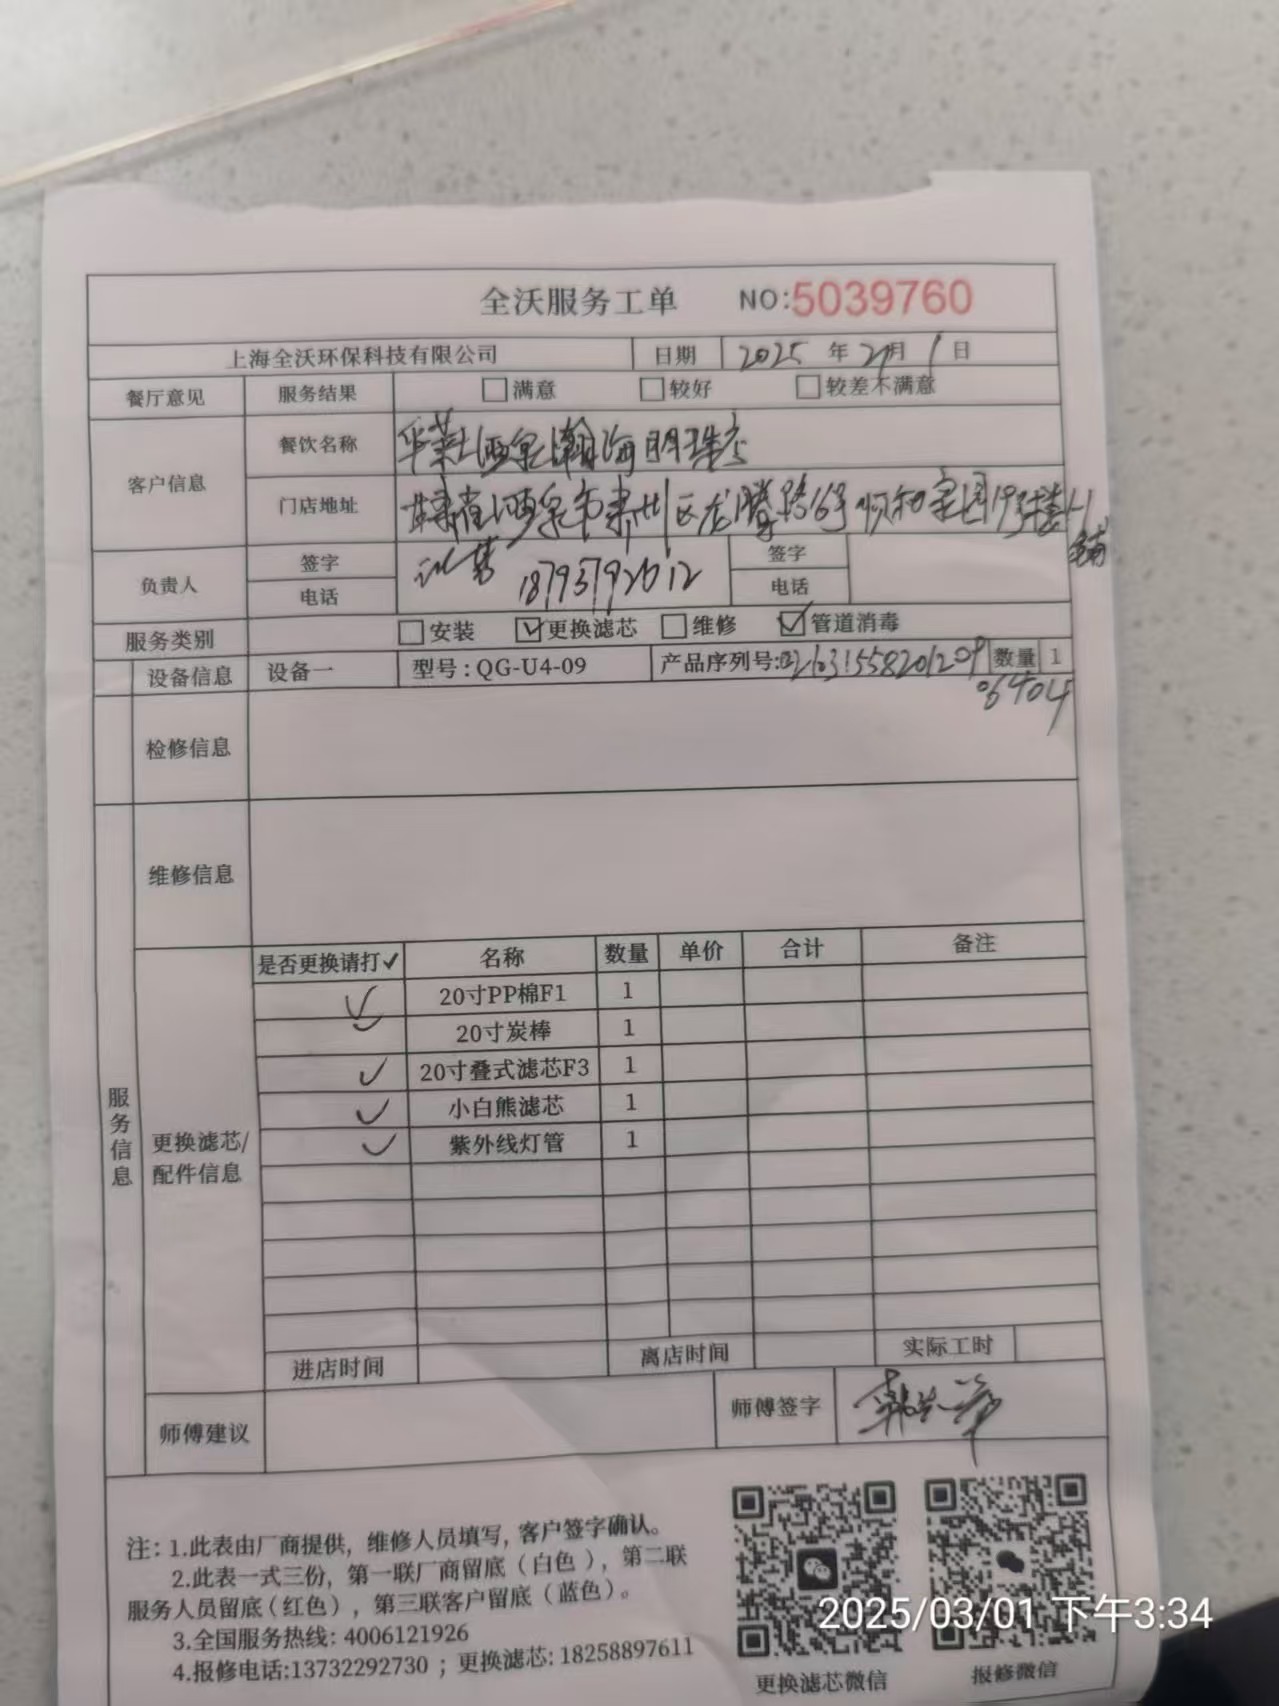 全沃服务工单 NO:5039760
上海全沃环保科技有限公司 日期 2025 年 月 1 日
餐厅意见 服务结果 满意 较好 较差不满意
客户信息 餐饮名称 华莱士酒泉瀚海明珠店
门店地址 甘肃省酒泉市肃州区龙腾路16号顺和家园19号楼1-1
铺
负责人 签字 签字
电话 18793792612 电话
服务类别 安装 更换滤芯 维修 管道消毒
设备信息 设备一 型号:QG-U4-09 产品序列号: 数量 1
06404
检修信息
维修信息
服务信息
更换滤芯/配件信息
是否更换请打✓ 名称 数量 单价 合计 备注
✓ 20寸PP棉F1 1
✓ 20寸炭棒 1
✓ 20寸叠式滤芯F3 1
✓ 小白熊滤芯 1
✓ 紫外线灯管 1
进店时间 离店时间 实际工时
师傅建议 师傅签字
注: 1.此表由厂商提供，维修人员填写，客户签字确认。
2.此表一式三份，第一联厂商留底（白色），第二联
服务人员留底（红色），第三联客户留底（蓝色）。
3.全国服务热线: 4006121926
4.报修电话:13732292730 ；更换滤芯: 18258897611
更换滤芯微信 报修微信
2025/03/01 下午3:34